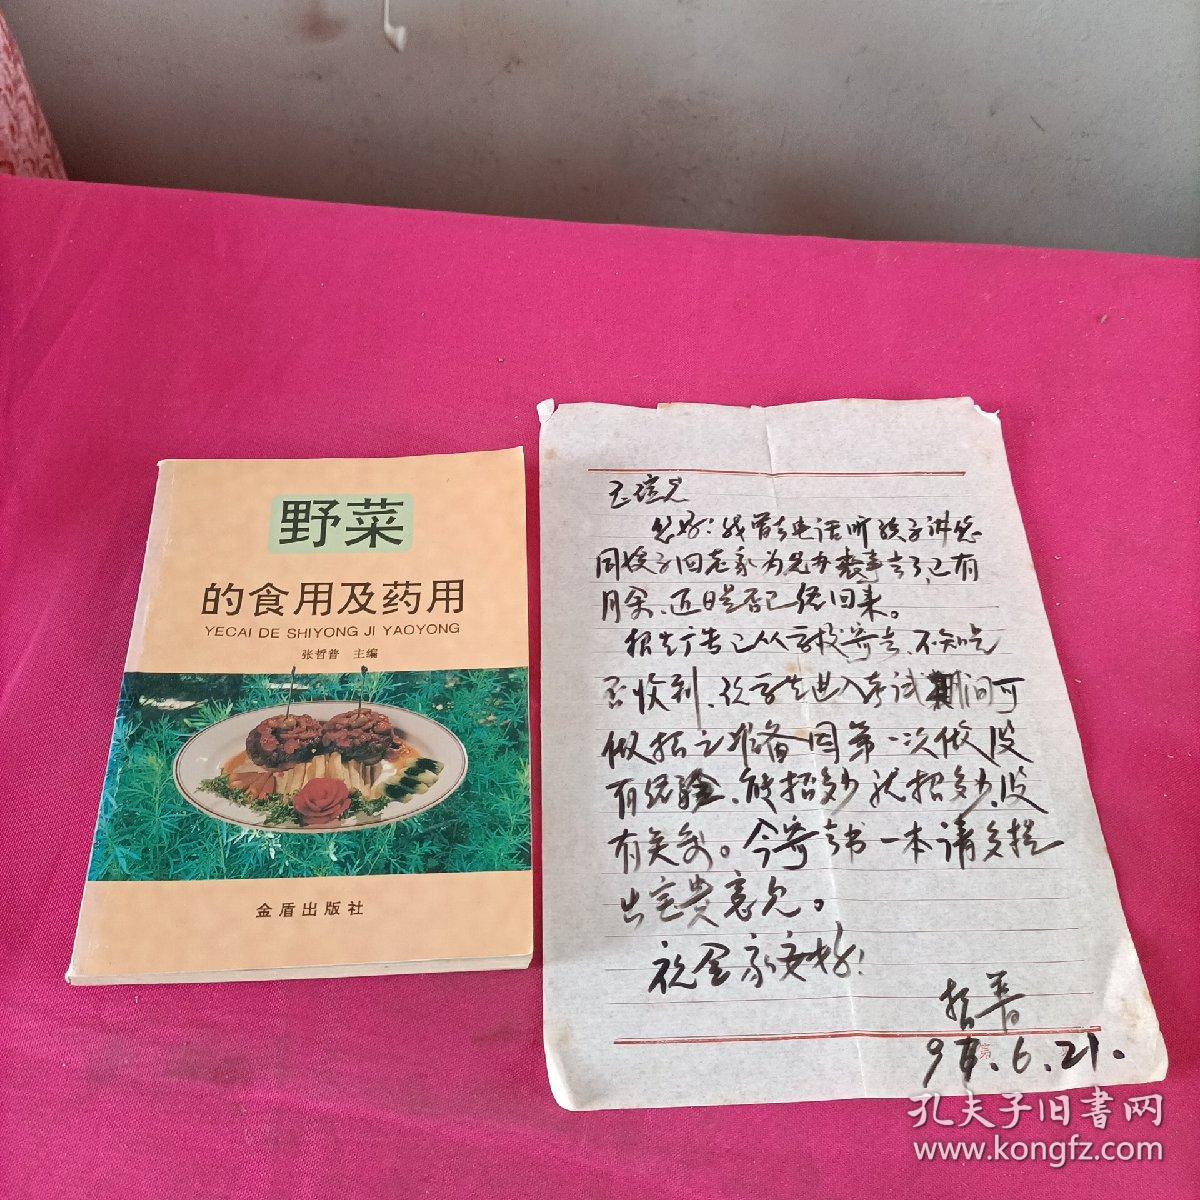 野菜
的食用及药用
YECAI DE SHIYONG JI YAOYONG
张哲普 主编
金盾出版社
您好:我曾去电话听孩子讲您
同嫂子回老家为兄办丧事去了,已有
月余、近日是否已经回来。
招生广告已从学校寄去,不知是
否收到,后学生进入考试期间可
做招之准备因第一次做没
有经验、能招多少就招多少,没
有关系。今寄去书一本请多提
出宝贵意见。
祝全家安好!
哲普
.6.21.
孔夫子旧书网
www.kongfz.com